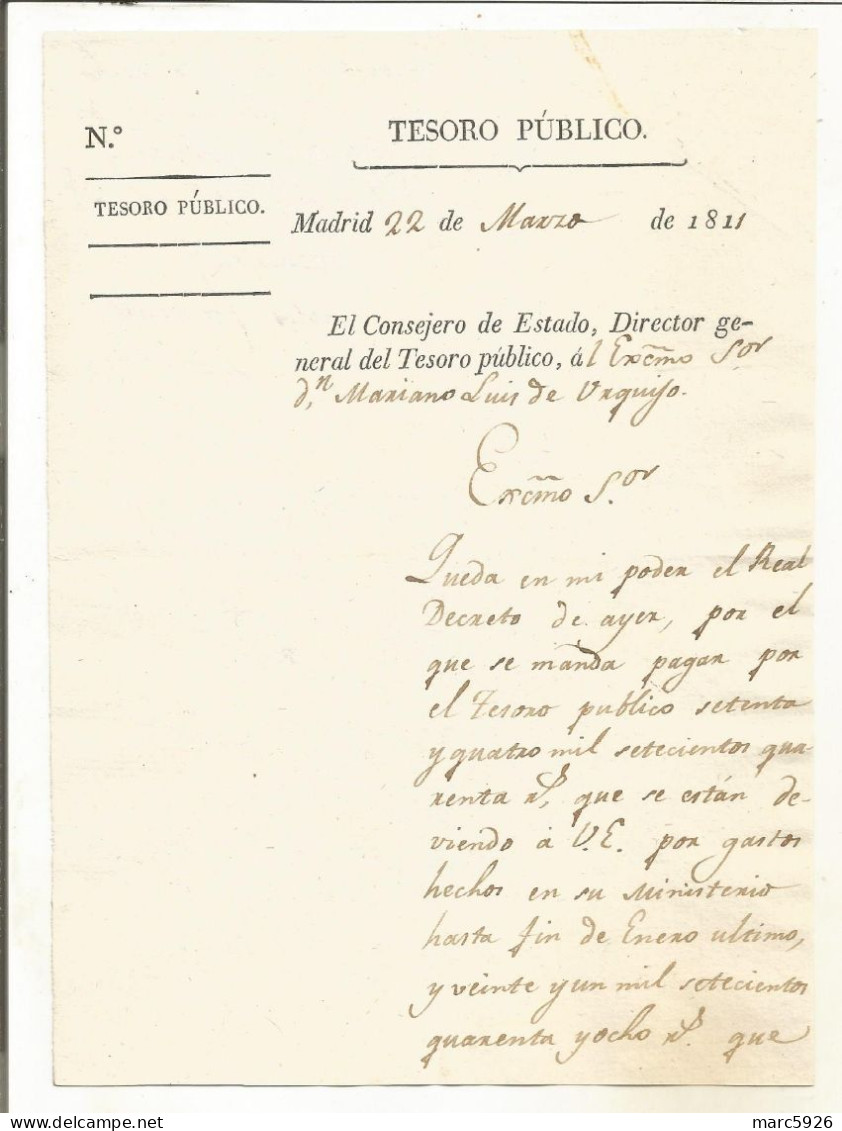 N.º
TESORO PÚBLICO.
TESORO PÚBLICO.
Madrid 22 de Marzo de 1811
El Consejero de Estado, Director ge-
neral del Tesoro público, ál Excmo Sor
dn. Mariano Luis de Urquijo.
Excmo S.or
Queda en mi poder el Real
Decreto de ayer, por el
que se manda pagar por
el Tesoro publico setenta
y quatro mil setecientos qua-
renta rs, que se están de-
viendo á V.E. por gastos
hechos en su Ministerio
hasta fin de Enero ultimo,
y veinte y un mil setecientos
quarenta y ocho rs. que
marc5926